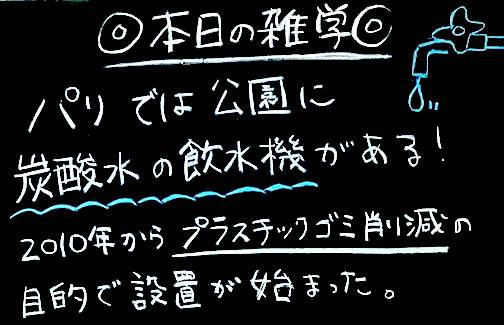 ◎本日の雑学◎
パリでは公園に
炭酸水の飲水機がある!
2010年からプラスチックゴミ削減の
目的で設置が始まった。